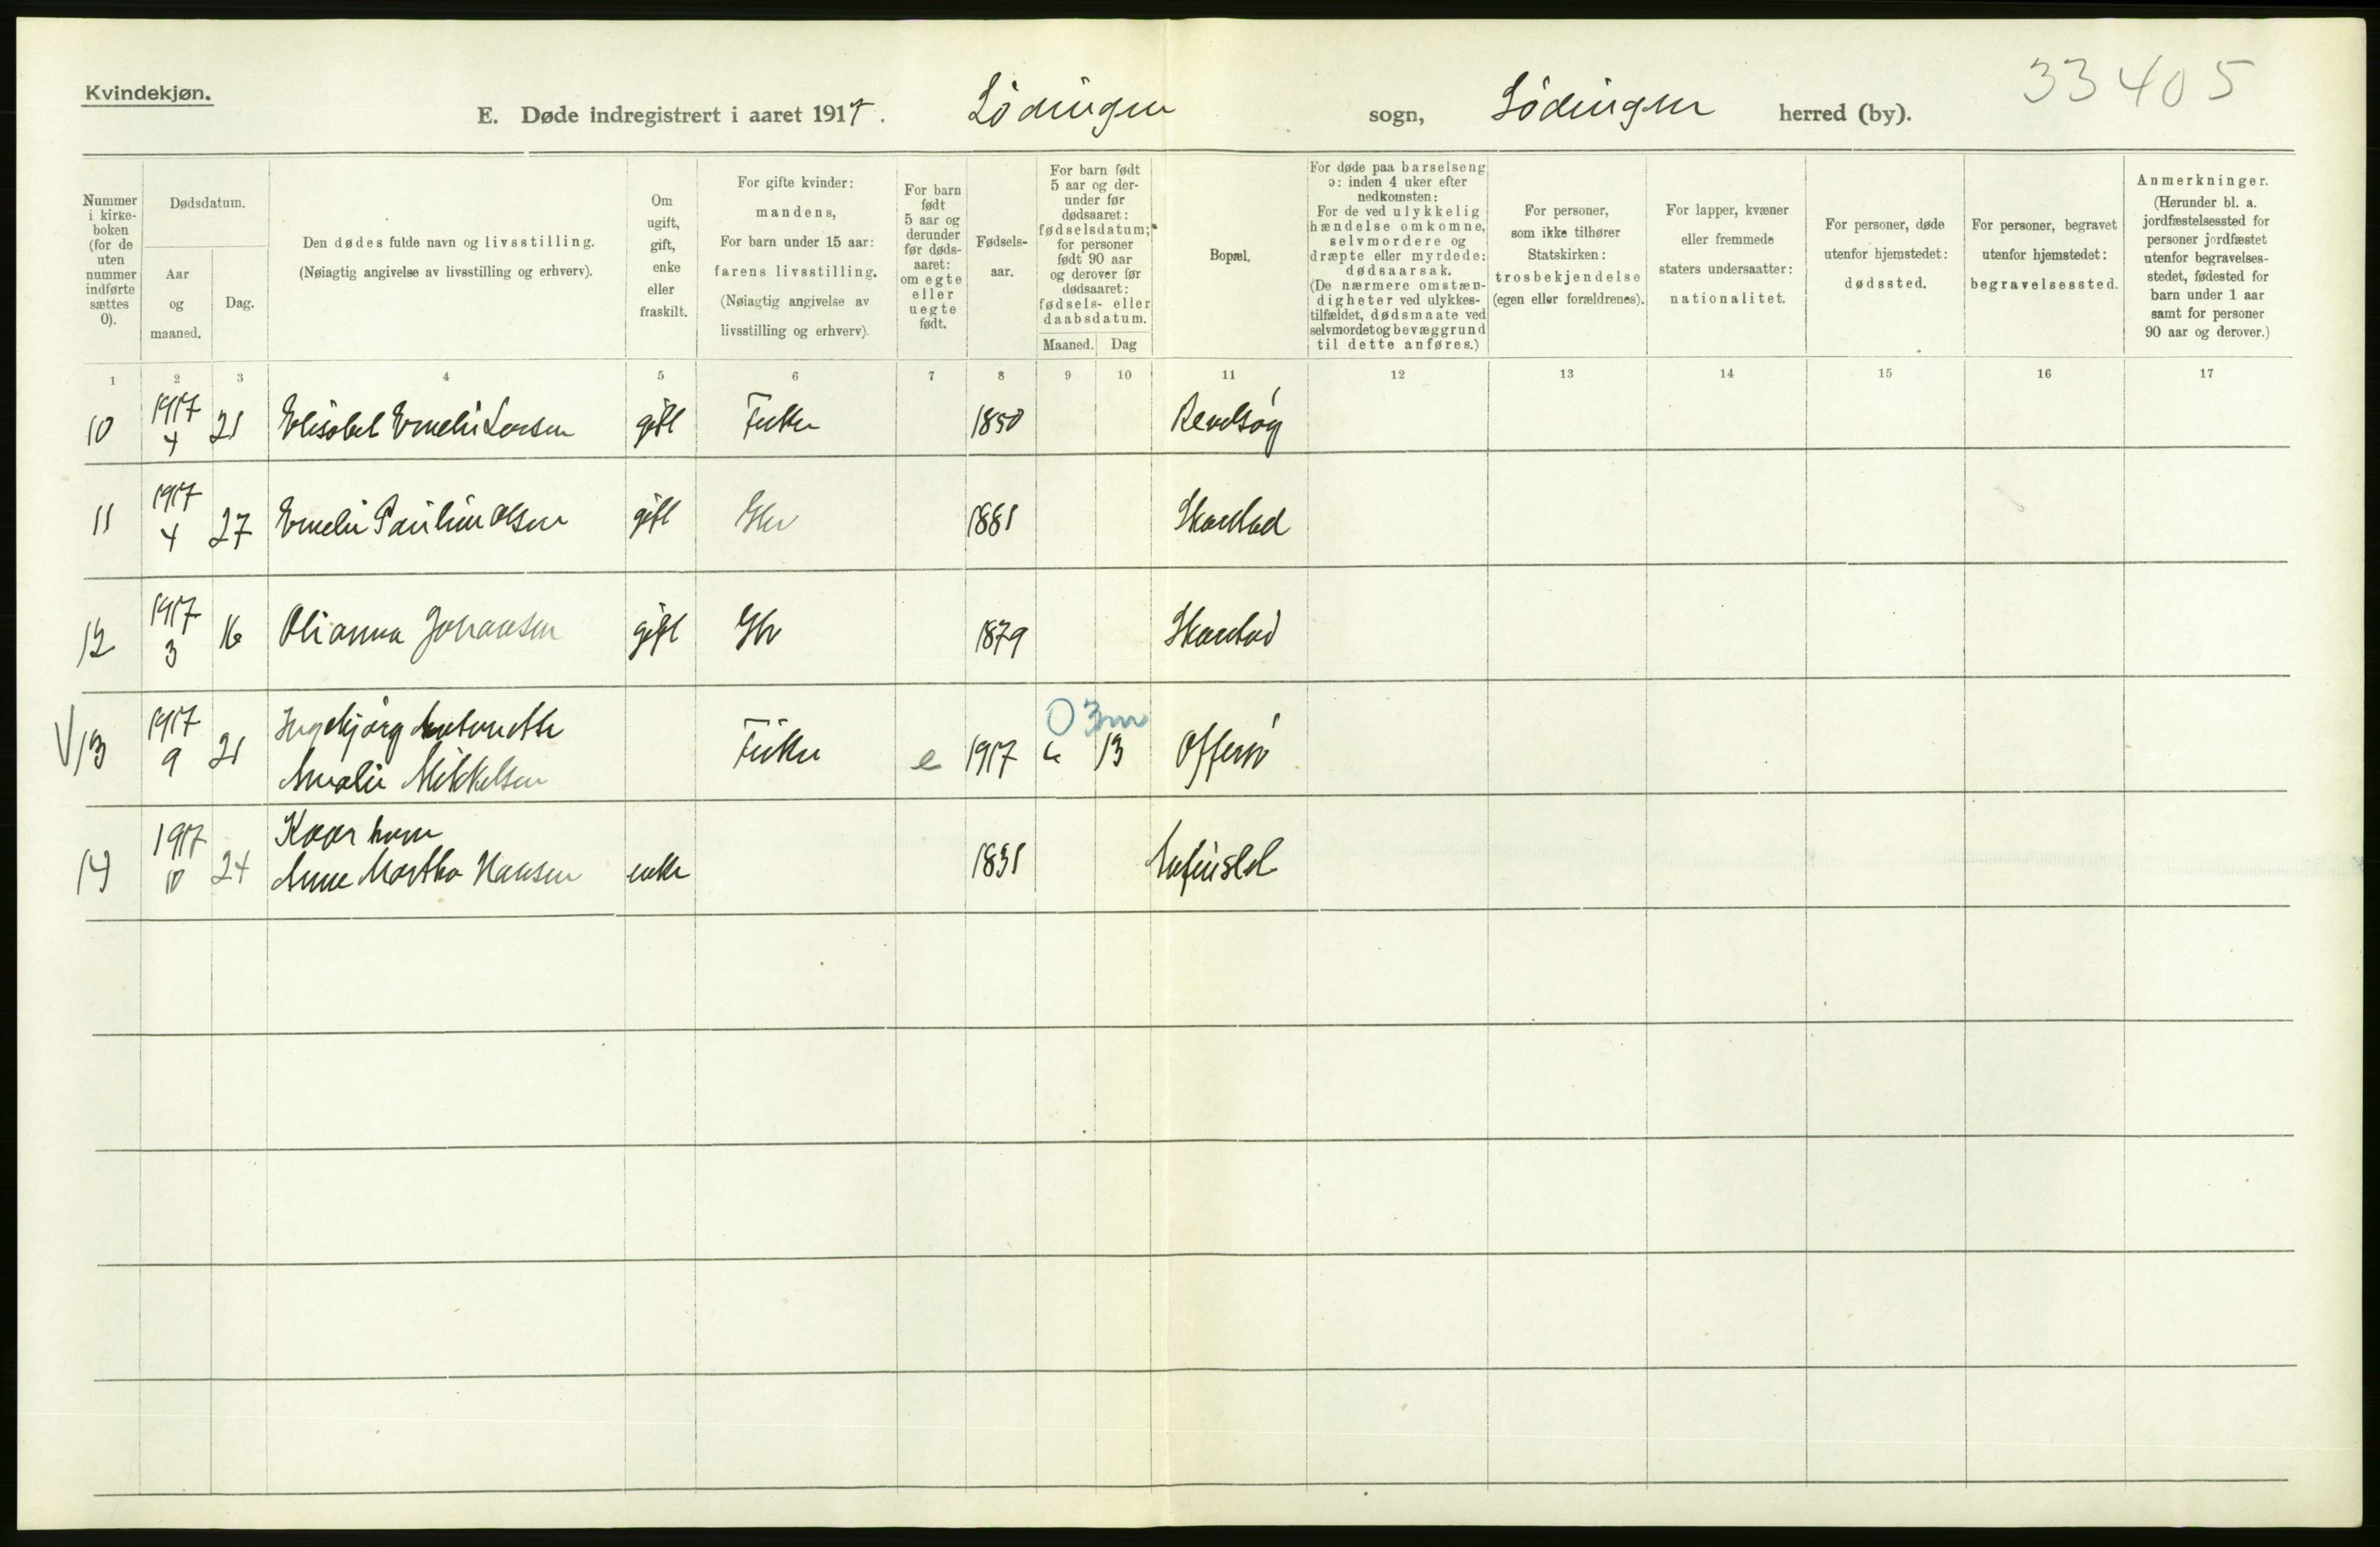 Kvindekjøn.
33405
E. Døde indregistrert i aaret 1917. Lödingen sogn, Lödingen herred (by).
Nummer i kirke- boken (for de uten nummer indførte sættes 0).
Dødsdatum.
Aar og maaned.
Dag.
Den dødes fulde navn og livsstilling.
(Nøiagtig angivelse av livsstilling og erhverv).
Om ugift, gift, enke eller fraskilt.
For gifte kvinder:
mandens,
For barn under 15 aar:
farens livsstilling.
(Nøiagtig angivelse av
livsstilling og erhverv).
For barn født 5 aar og derunder før døds- aaret: om egte eller uegte født.
Fødsels- aar.
For barn født 5 aar og der- under før dødsaaret: fødselsdatum; for personer født 90 aar og derover før dødsaaret: fødsels- eller daabsdatum.
Maaned. Dag
Bopæl.
For døde paa barselseng
ɔ: inden 4 uker efter
nedkomsten:
For de ved ulykkelig
hændelse omkomne,
selvmordere og
dræpte eller myrdede:
dødsaarsak.
(De nærmere omstæn-
digheter ved ulykkes-
tilfældet, dødsmaate ved
selvmordet og bevæggrund
til dette anføres.)
For personer,
som ikke tilhører
Statskirken:
trosbekjendelse
(egen eller forældrenes).
For lapper, kvæner
eller fremmede
staters undersaatter:
nationalitet.
For personer, døde
utenfor hjemstedet:
dødssted.
For personer, begravet
utenfor hjemstedet:
begravelsessted.
Anmerkninger.
(Herunder bl. a.
jordfæstelsessted for
personer jordfæstet
utenfor begravelses-
stedet, fødested for
barn under 1 aar
samt for personer
90 aar og derover.)
1 2 3 4 5 6 7 8 9 10 11 12 13 14 15 16 17
10 1917 4 21 Elisabet Emelie Larsen gift Fisker 1850
11 1917 4 27 Emelie Pauline Olsen gift Gbr 1881 Skarstad
12 1917 3 16 Olianna Johansen gift Gbr 1879 Skarstad
V 13 1917 9 21 Ingebjørg Antonette
Amalie Mikkelsen Fisker e 1917 6 13 Offersö
0 3m
14 1917 10 24 Kaarkone
Anne Martha Hansen enke 1831